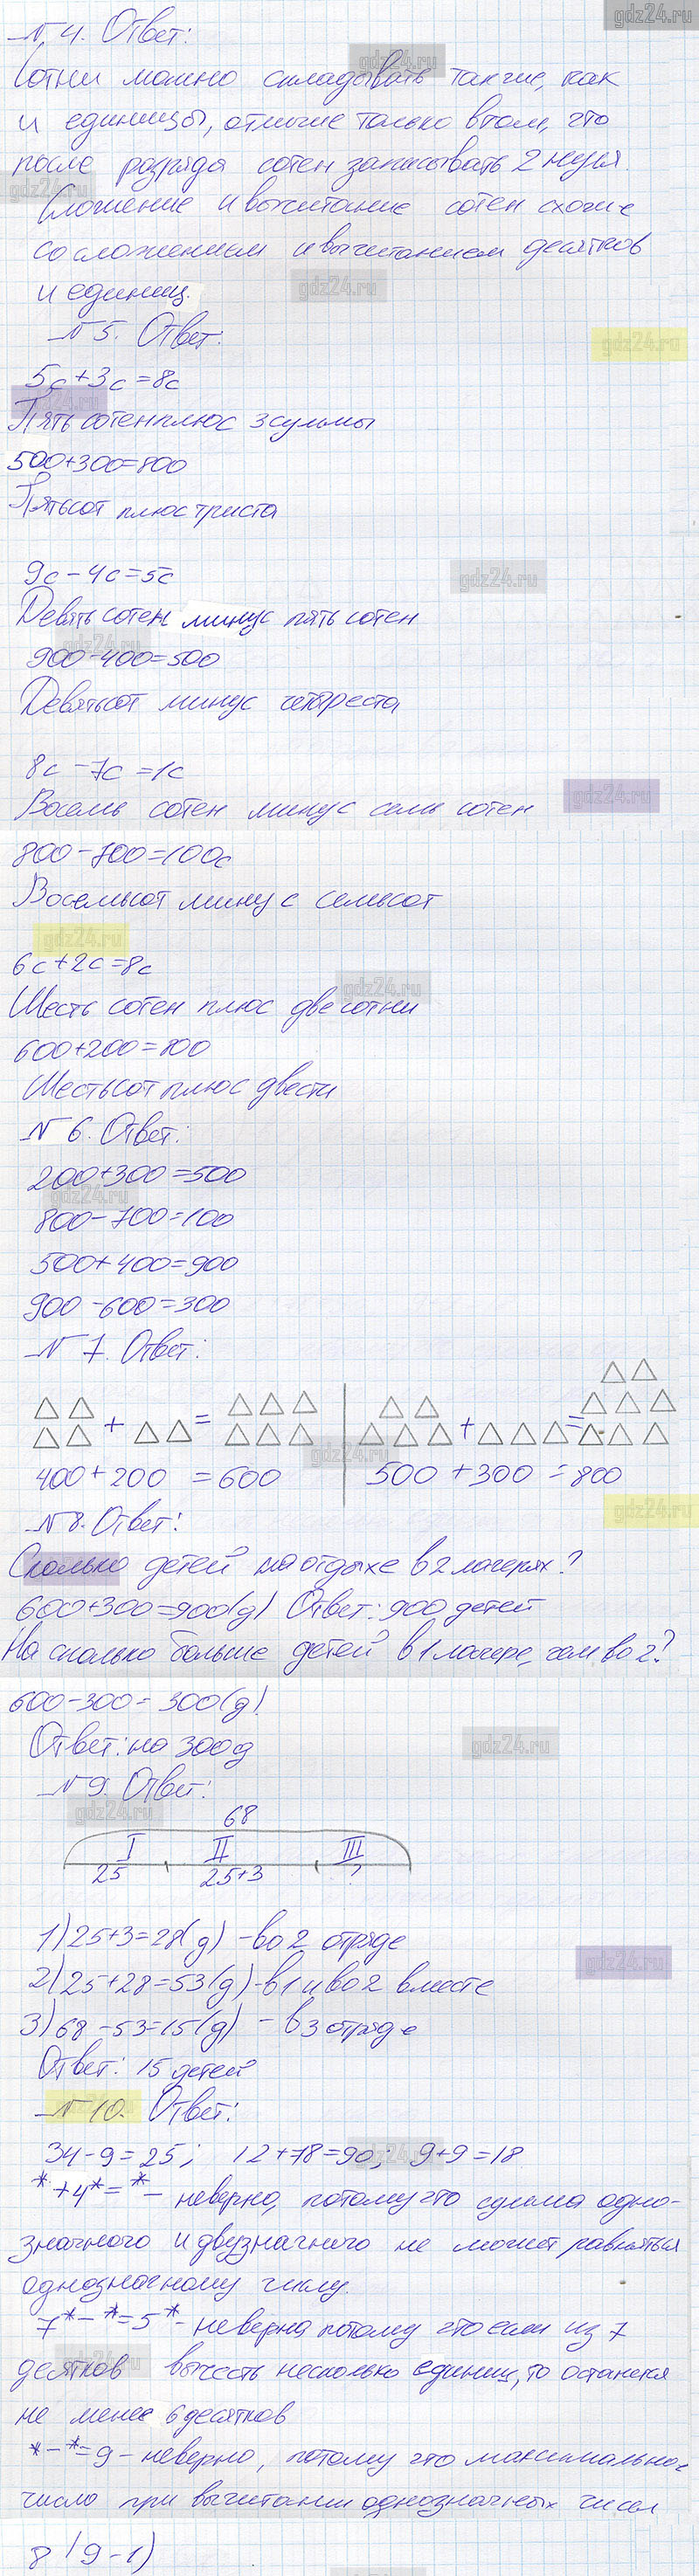 gdz24.ru
N 4. Ответ:
Сотни можно складывать также, как
и единицы, отличие только в том, что
после разряда сотен записывать 2 нуля.
Сложение и вычитание сотен схоже
со сложением и вычитанием десятков
и единиц.
N 5. Ответ:
5с+3с=8с
Пять сотен плюс 3 суммы
500+300=800
Пятьсот плюс триста
9с-4с=5с
Девять сотен минус пять сотен
900-400=500
Девятьсот минус четыреста
8с-7с=1с
Восемь сотен минус семь сотен
800-700=100с
Восемьсот минус семьсот
6с+2с=8с
Шесть сотен плюс две сотни
600+200=800
Шестьсот плюс двести
N 6. Ответ:
200+300=500
800-700=100
500+400=900
900-600=300
N 7. Ответ:
+ = + =
400+200 =600 500+300=800
N 8. Ответ:
Сколько детей на отдыхе в 2 лагерях?
600+300=900(д) Ответ: 900 детей
На сколько больше детей в 1 лагере, чем во 2?
600-300=300(д)
Ответ: на 300д
N 9. Ответ:
68
I II III
25 25+3 ?
1) 25+3=28(д) - во 2 отряде
2) 25+28=53(д)-в 1 и во 2 вместе
3) 68-53=15(д) - в 3 отряде
Ответ: 15 детей
N 10. Ответ:
34-9=25; 12+78=90; 9+9=18
*+4*=*- неверно, потому что сумма одно-
значного и двузначного не может равняться
однозначному числу.
7*-*=5*- неверно потому что если из 7
десятков вычесть несколько единиц, то останется
не менее 6 десятков
*-*=9-неверно, потому что максимальное
число при вычитании однозначных чисел
8 (9-1)